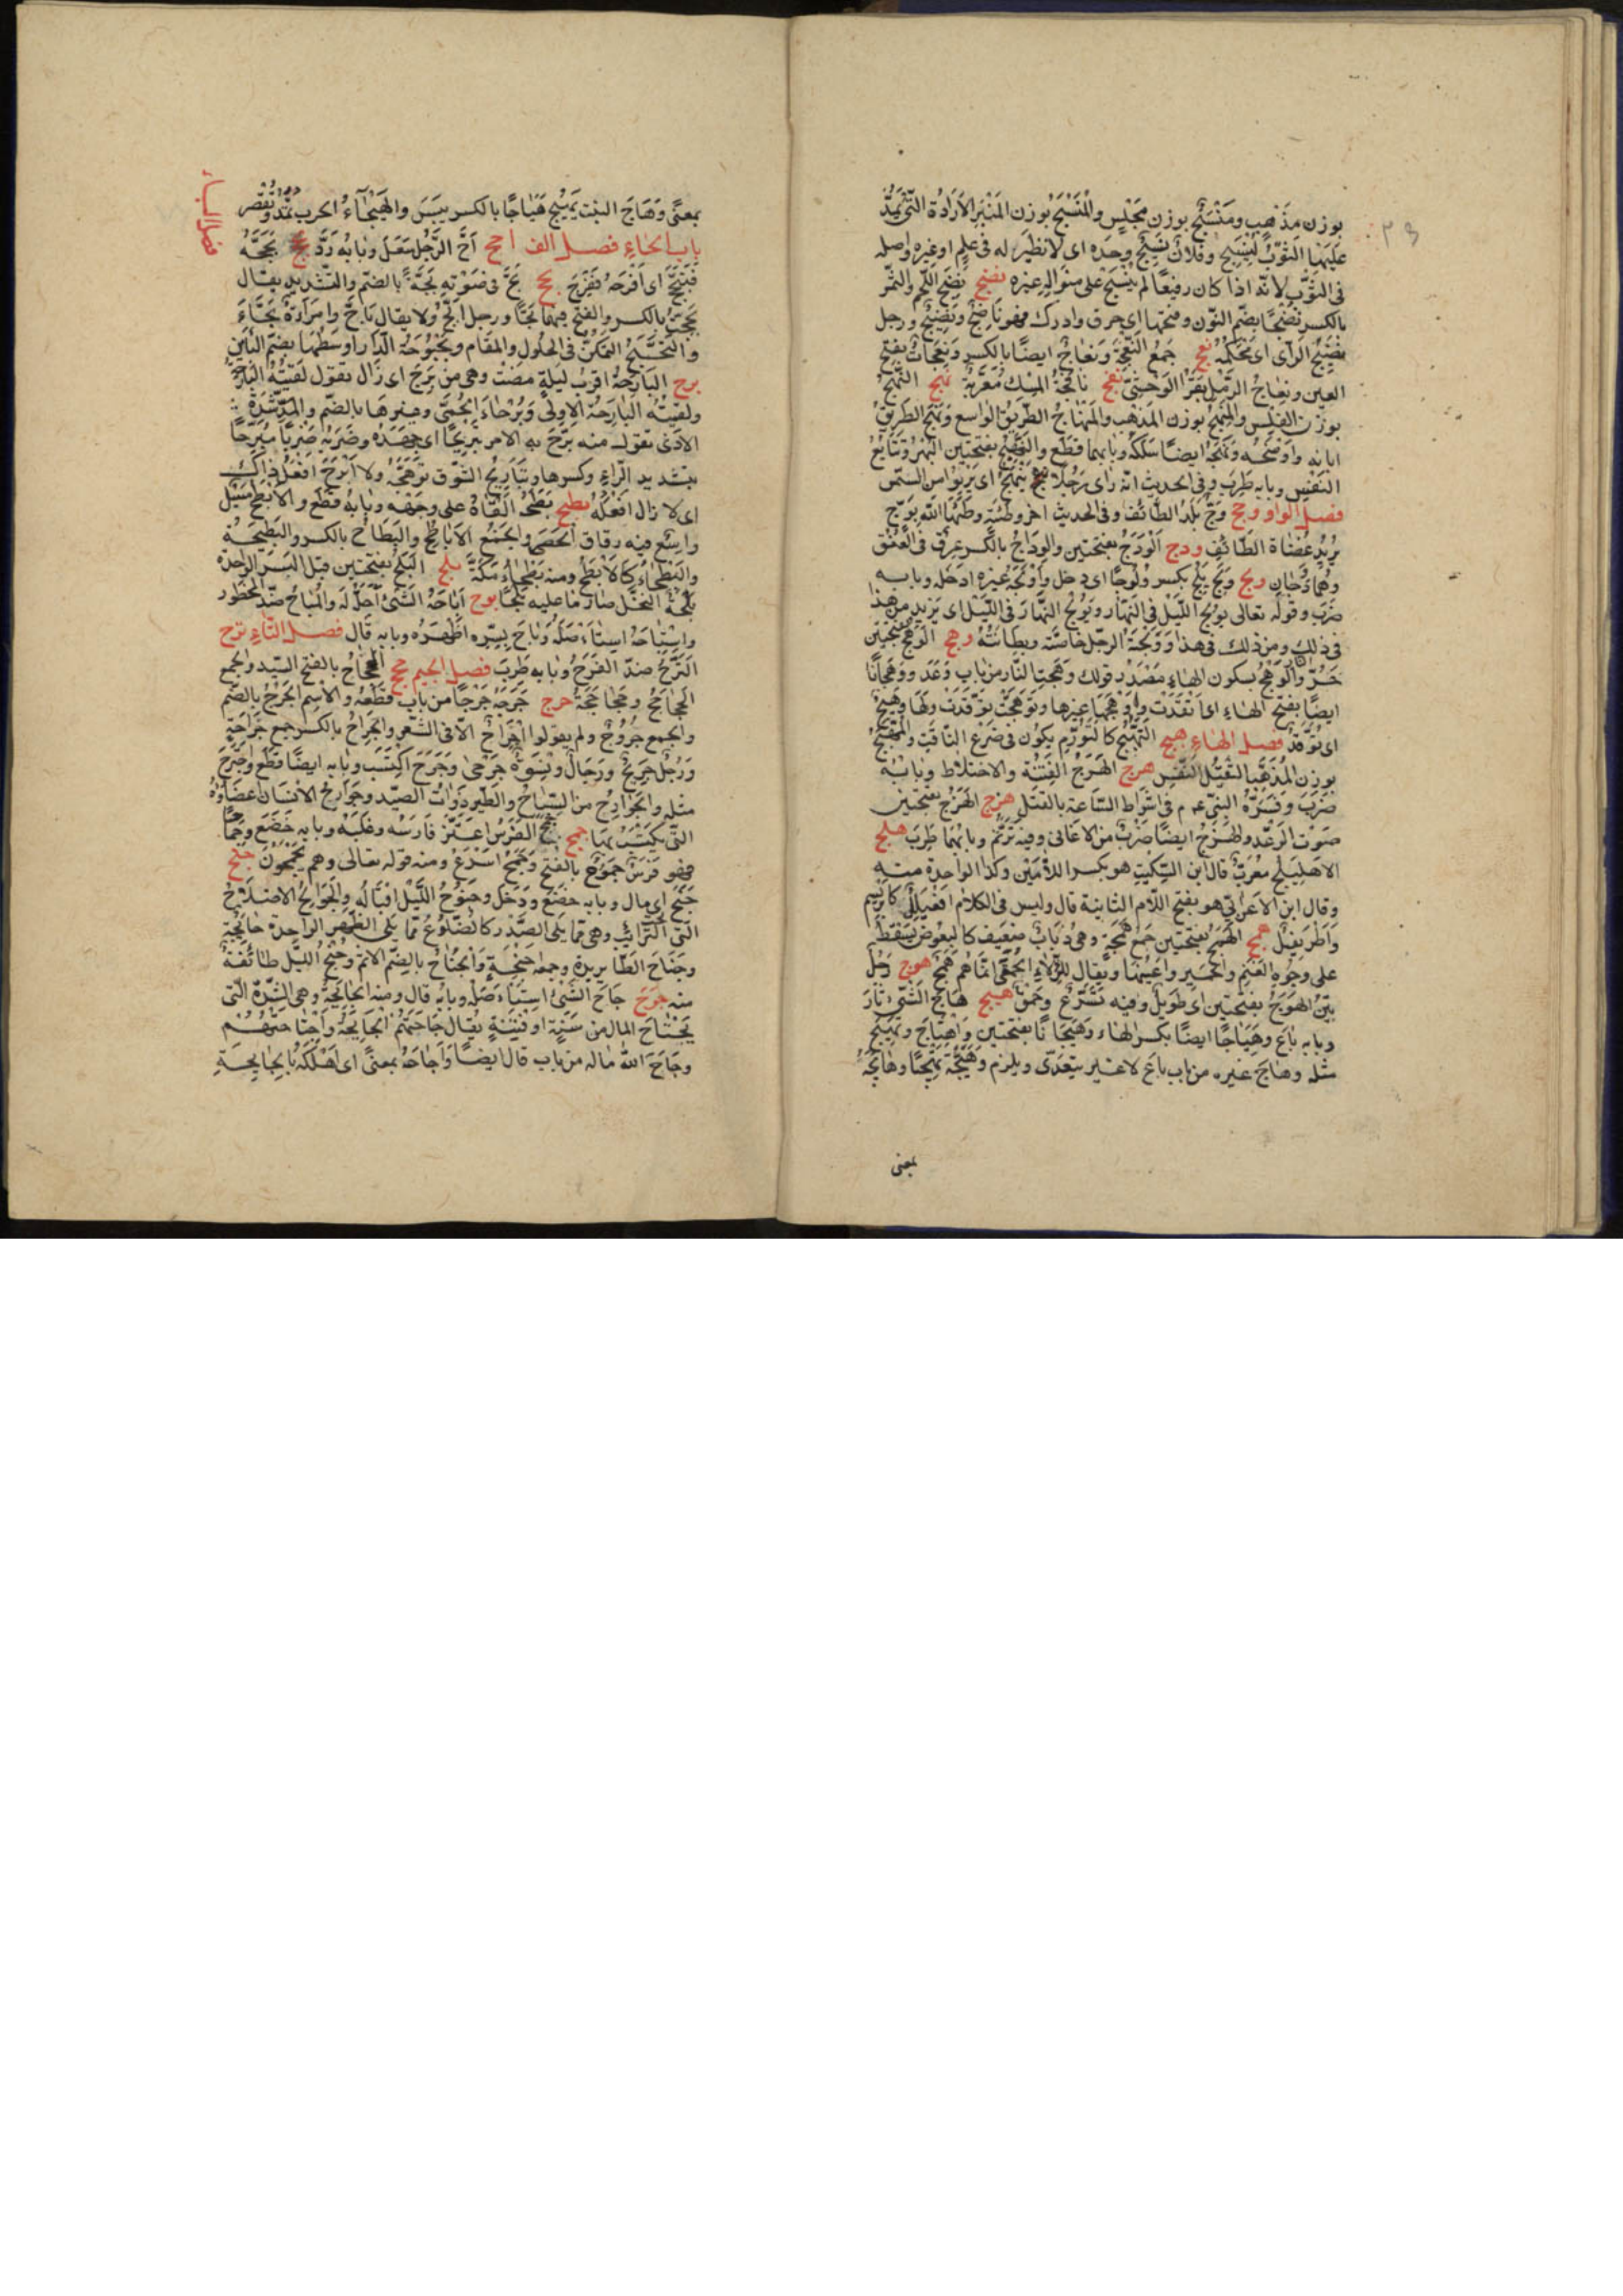 بوزن مذهب ومنسج بوزن مجلس والمنسج بوزن المنبر الاداة التى يمد
عليها الثوب لينسج وفلان نسيج وحده اى لا نظير له فى علم او غيره واصله
فى الثوب لانه اذا كان رفيعا لم ينسج على منواله غيره نضج نضج اللحم والتمر
بالكسر نضجا بضم النون وفتحها اى وادرك فهو ناضج ونضيج ورجل
نضيج الرأى اى محكمه نعج جمع النعجة ونعاج ايضا بالكسر ونعجات بفتح
العين ونعاج الرمل بقر الوحش نفج نافجة المسك معربة نهج النهج
بوزن الفلس والمنهج بوزن المذهب والمنهاج الطريق الواسع ونهج الطريق
ابانه واوضحه ونهجه ايضا سلكه وبابهما قطع والنهج بفتحتين البهر وتتابع
النفس وبابه طرب وفى الحديث انه راى رجلا ينهج اى يربو من السمن
فصل الواو وجج وج بلد الطائف وفى الحديث اخر وطئة وطئها الله بوج
يريد غزاة الطائف ودج الودج بفتحتين والوداج بالكسر عرق فى العنق
وهما ودجان ولج ولج يلج بكسر ولوجا اى دخل واولجه غيره ادخله وبابه
ضرب وقوله تعالى يولج الليل فى النهار ويولج النهار فى الليل اى يزيد من هذا
فى ذلك ومن ذلك فى هذا ووليجة الرجل خاصته وبطانته وهج الوهج بفتحتين
حر النار والوهج بسكون الهاء مصدر قولك وهجت النار من باب وعد ووهجانا
ايضا بفتح الهاء اى اتقدت واوهجها غيرها وتوهجت توقدت ولها وهيج
اى توقد فصل الهاء هبج التهبج كالتورم يكون فى ضرع الناقة والمهبج
بوزن المذهب الثقيل النفس هرج الهرج الفتنة والاختلاط وبابه
ضرب وفسره النبى عم فى اشراط الساعة بالقتل هزج الهزج بفتحتين
صوت الرعد والهزج ايضا ضرب من الاغانى وفيه ترنم وبابهما طرب هلج
الاهليلج معرب قال ابن السكيت هو بكسر اللامين وكذا الواحدة منه
وقال ابن الاعرابى هو بفتح اللام الثانية قال وليس فى الكلام افعيلل كابريسم
واطريفل همج الهمج بفتحتين جمع همجة وهى ذباب صغير كالبعوض يسقط
على وجوه الغنم والحمير واعينها ويقال للرعاع الحمقى انما هم همج هوج رجل
بين الهوج بفتحتين اى طويل وفيه تسرع وحمق هيج هاج الشئ ثار
وبابه باع وهياجا ايضا بكسر الهاء وهيجانا بفتحتين واهتاج وتهيج
مثله وهاج غيره من باب باع لا غير يتعدى ويلزم وهيجه تهييجا وهايجه
بمعنى
فصل الباء
بمعنى وهاج النبت يهيج هياجا بالكسر يبس والهيجاء الحرب تمد وتقصر
باب الحاء فصل الف احح اح الرجل سعل وبابه رد بجح بجحه
فتبجح اى افرحه ففرح بحح بح فى صوته بحة بالضم والتشديد يقال
بححت بالكسر والفتح فيهما بحا ورجل ابح ولا يقال باح وامرأة بحاء
والتبحبح التمكن فى الحلول والمقام وبحبوحة الدار اوسطها بضم البائين
برح البارحة اقرب ليلة مضت وهى من برح اى زال تقول لقيته البارحة
ولقيته البارحة الاولى وبرحاء الحمى وغيرها بالضم والمد شدة
الاذى تقول منه برح به الامر تبريحا اى جهده وضربه ضربا مبرحا
بتشديد الراء وكسرها وتباريح الشوق توهجه ولا ابرح افعل ذاك
اى لا ازال افعله بطح بطحه القاه على وجهه وبابه قطع والابطح مسيل
واسع فيه دقاق الحصى والجمع الاباطح والبطاح بالكسر والبطيحة
والبطحاء كالابطح ومنه بطحاء مكة بلح البلح بفتحتين قبل البسر الواحدة
بلحة النخل صار ما عليه بلحا بوح اباحه الشئ احله له والمباح ضد المحظور
واستباحه استأصله وباح بسره اظهره وبابه قال فصل التاء ترح
الترح ضد الفرح وبابه طرب فصل الجيم جحح الجحجاح بالفتح السيد والجمع
الجحاجح وجحاجحة جرح جرحه جرحا من باب قطعه والاسم الجرح بالضم
والجمع جروح ولم يقولوا اجراح الا فى الشعر والجراح بالكسر جمع جراحة
ورجل جريح ورجال ونسوة جرحى وجرح اكتسب وبابه ايضا قطع واجترح
مثله والجوارح من السباع والطير ذوات الصيد وجوارح الانسان اعضاؤه
التى يكتسب بها جمح جمح الفرس اعتز فارسه وغلبه وبابه خضع وجماحا
فهو فرس جموح بالفتح وجمح اسرع ومنه قوله تعالى وهم يجمحون جنح
جنح اى مال وبابه خضع ودخل وجنوح الليل اقباله والجوانح الاضلاع
التى تحت الترائب وهى مما يلى الصدر كالضلوع مما يلى الظهر الواحدة جانحة
وجناح الطائر يده وجمعه اجنحة والجناح بالضم الاثم وجنح الليل طائفة
منه جوح جاح الشئ استأصله وبابه قال ومنه الجايحة وهى الشدة التى
تجتاح المال من سنة او فتنة يقال جاحتهم الجايحة واجتاحتهم
وجاح الله ماله من باب قال ايضا واجاحه بمعنى اى اهلكه بالجايحة